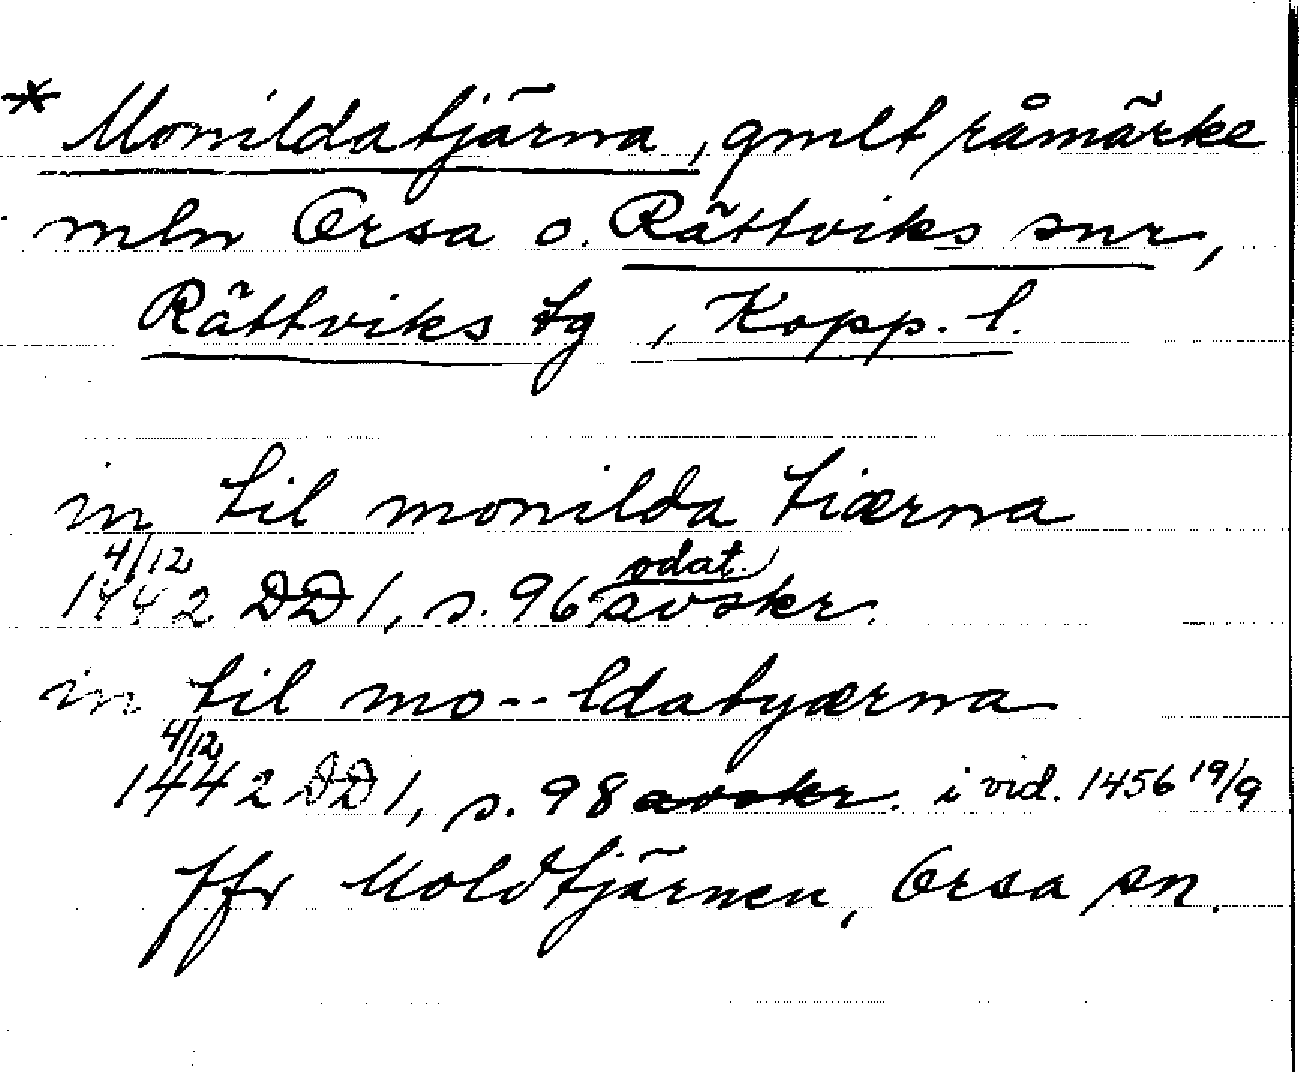 * Monildatjärna, gmlt råmärke
mln Orsa o. Rättviks snr,
Rättviks tg, Kopp. l.
in til monilda tiærna
4/12
1442 DD 1, s. 96 odat. avskr.
in til mo--ldatyærna
4/12
1442 DD 1, s. 98 avskr. i vid. 1456 19/9
Jfr Moldtjärnen, Orsa sn.